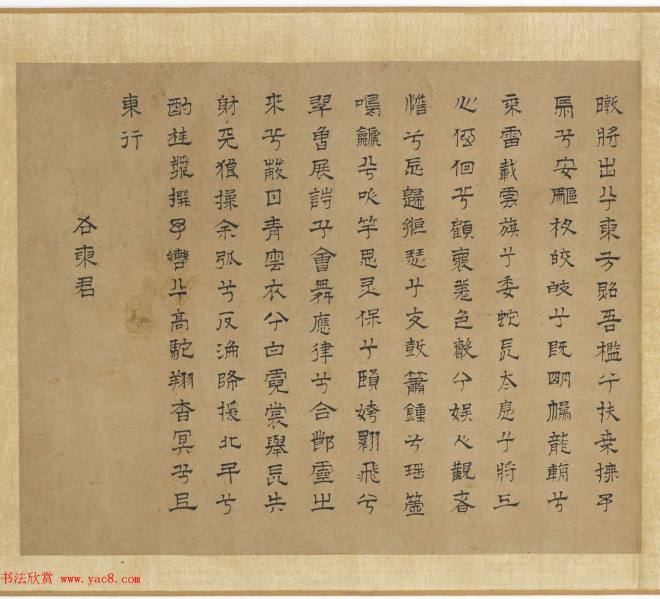 暾將出兮東方照吾檻兮扶桑撫予
馬兮安驅夜皎皎兮既明駕龍輈兮
乘雷載雲旗兮委蛇長太息兮將上
心低佪兮顧懷羌色聲兮娛人觀者
憺兮忘歸緪瑟兮交鼓簫鍾兮瑤簴
鳴䶵兮吹竽思靈保兮賢姱翾飛兮
翠曾展詩兮會舞應律兮合節靈之
來兮蔽日青雲衣兮白霓裳舉長矢
射天狼操余弧兮反淪降援北斗兮
酌桂漿撰予轡兮高駝翔杳冥兮以
東行
右東君
书法欣赏 www.yac8.com